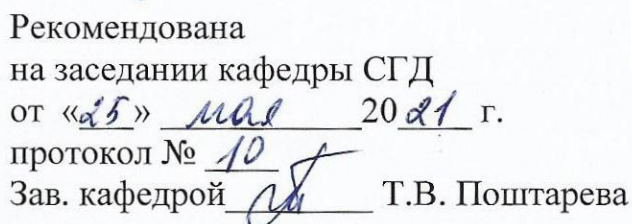 Рекомендована
на заседании кафедры СГД
от «25» мая 2021 г.
протокол № 10
Зав. кафедрой Т.В. Поштарева